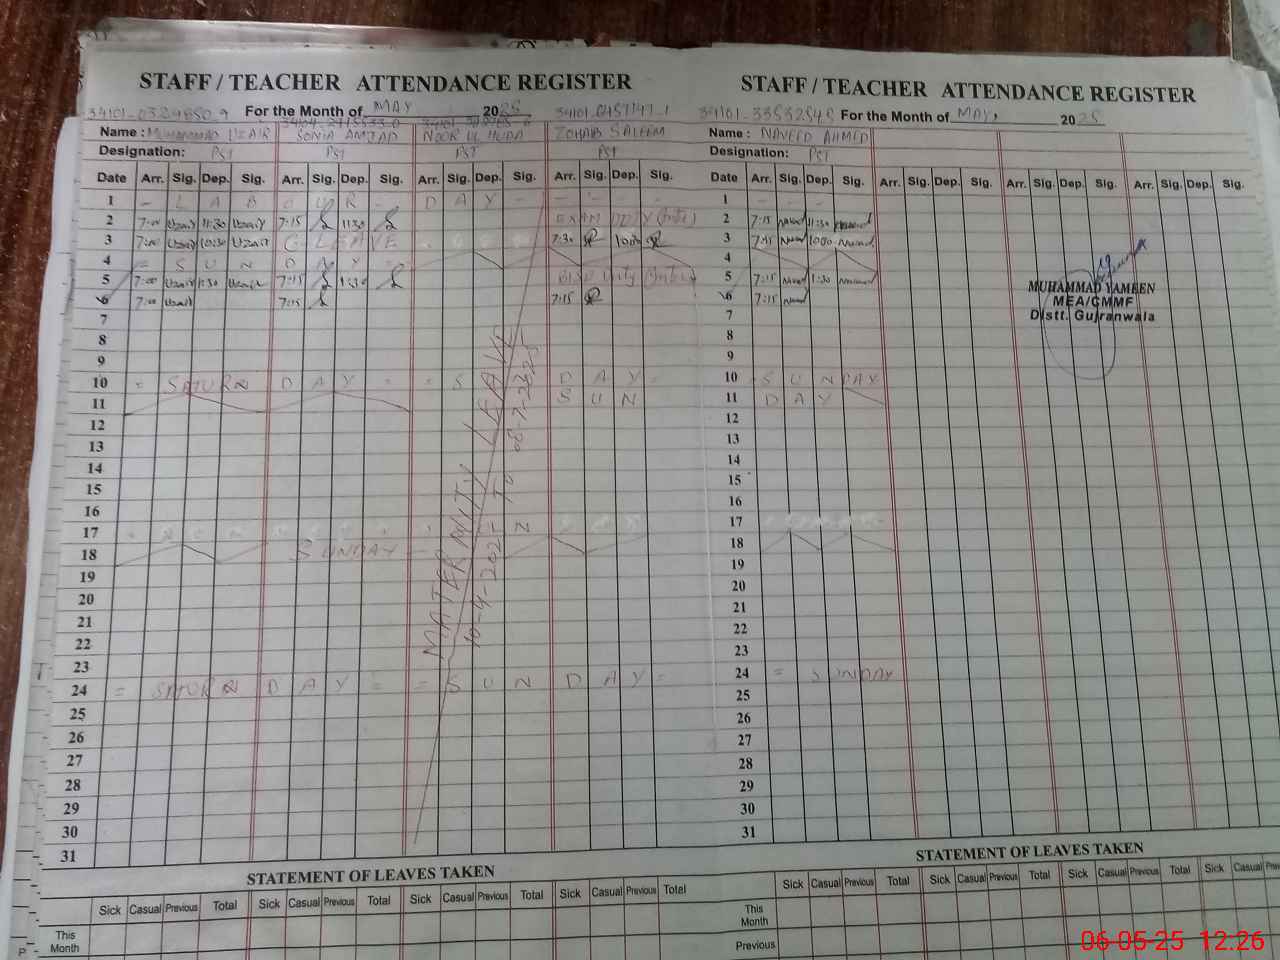 STAFF / TEACHER ATTENDANCE REGISTER
For the Month of MAY 2025
Name : MUHAMMAD UZAIR SONIA AMJAD NOOR UL HUDA ZOHAIB SALEEM
Designation: PST PST PST PST
Date Arr. Sig. Dep. Sig. Arr. Sig. Dep. Sig. Arr. Sig. Dep. Sig. Arr. Sig. Dep. Sig.
1 - L A B O U R - D A Y - - - -
2 7:00 Uzair 11:30 Uzair 7:15 11:30 EXAM DUTY
3 7:00 Uzair 10:30 Uzair C-LEAVE 7:30 10:00
4 = S U N D A Y =
5 7:00 Uzair 11:30 Uzair 7:15 11:30
6 7:00 Uzair 7:15 7:15
7
8
9
10 = SATURN D A Y = = S D A Y =
11 S U N
12
13
14
15
16
17
18 SUNDAY
19
20
21
22
23
24 = SATUR N D A Y = = S U N D A Y =
25
26
27
28
29
30
31
MATERNITY LEAVE
10-4-2025 TO 08-7-2025
STATEMENT OF LEAVES TAKEN
Sick Casual Previous Total Sick Casual Previous Total Sick Casual Previous Total Sick Casual Previous Total
This Month
STAFF / TEACHER ATTENDANCE REGISTER
For the Month of MAY, 2025
Name : NAVEED AHMED
Designation: PST
Date Arr. Sig. Dep. Sig. Arr. Sig. Dep. Sig. Arr. Sig. Dep. Sig. Arr. Sig. Dep. Sig.
1 - - -
2 7:15 Naveed 11:30 Naveed
3 7:15 Naveed 10:00 Naveed
4
5 7:15 Naveed 11:30 Naveed
6 7:15 Naveed
7
8
9
10 = S U N DAY
11 D A Y
12
13
14
15
16
17
18
19
20
21
22
23
24 = S UNDAY
25
26
27
28
29
30
31
MUHAMMAD YAMEEN
MEA/CMMF
Distt. Gujranwala
STATEMENT OF LEAVES TAKEN
Sick Casual Previous Total Sick Casual Previous Total Sick Casual Previous Total Sick Casual Previous
This Month
Previous
06-05-25 12:26